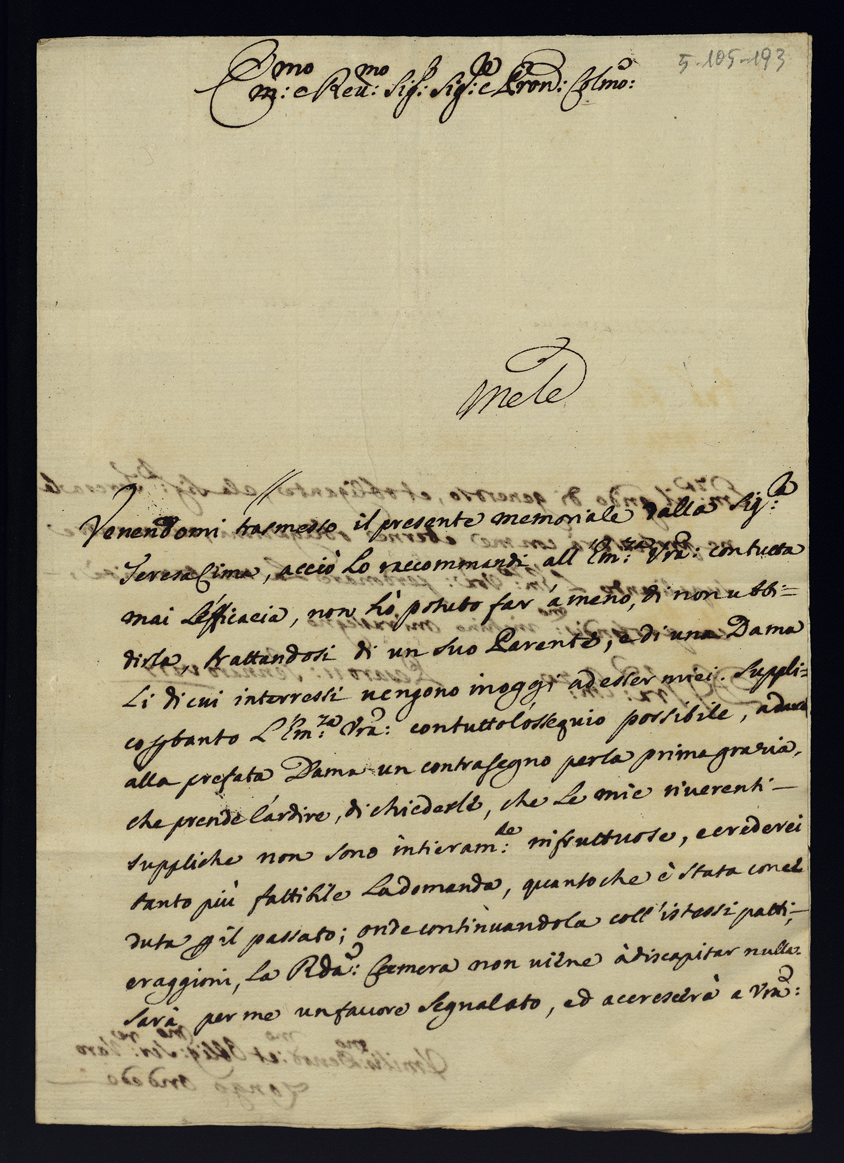 5-105-193
Em:mo e Reu:mo Sig:r Sig:re e Pron: Colmo:
Mele
Venendomi trasmesso il presente memoriale dalla Sig:ra
Teresa Cima, acciò Lo raccommandi all'Em:za Vra: con tutta
mai L'efficacia, non hò potuto far à meno, di non ubbi=
dirla, trattandosi di un suo Parente, e di una Dama
Li di cui interressi uengono inoggi ad esser miei. Suppli=
co pertanto L'Em:za Vra: con tutto l'ossequio possibile, a dare
alla prefata Dama un contrasegno per la prima grazia,
che prende l'ardire, di chiederle, che Le mie riuerenti
suppliche non sono intieram:te infruttuose, e crederei
tanto più fattibile La domanda, quanto che è stata conce
duta per il passato; onde continuandola coll'istessi patti,
e raggioni, La Rda: Camera non uiene à discapitar nulla.
Sarà per me un fauore segnalato, ed accrescerà a Vra: